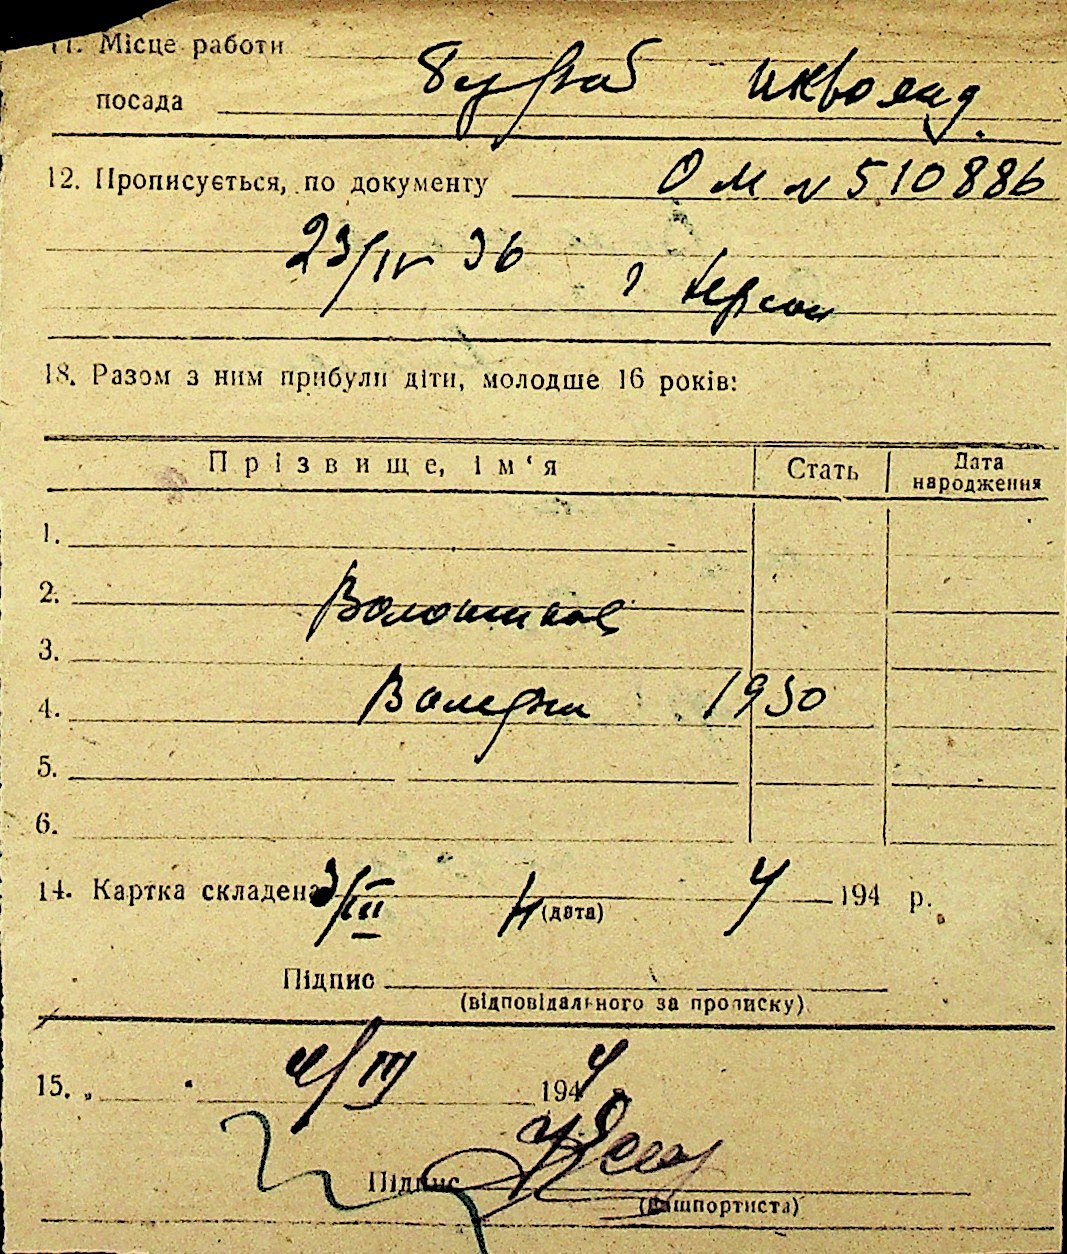 11. Місце работи
посада
12. Прописується, по документу О М № 510886
23/IV 36 г Херсон
18. Разом з ним прибули діти, молодше 16 років:
Прізвище, ім‘я Стать Дата народження
1.
2. Волошина
3.
4. Валерия 1930
5.
6.
14. Картка складена 3/III 4 194 р.
(дата)
Підпис
(відповідального за прописку)
15. „ 4/III 194 4
Підпис
(пашпортиста)